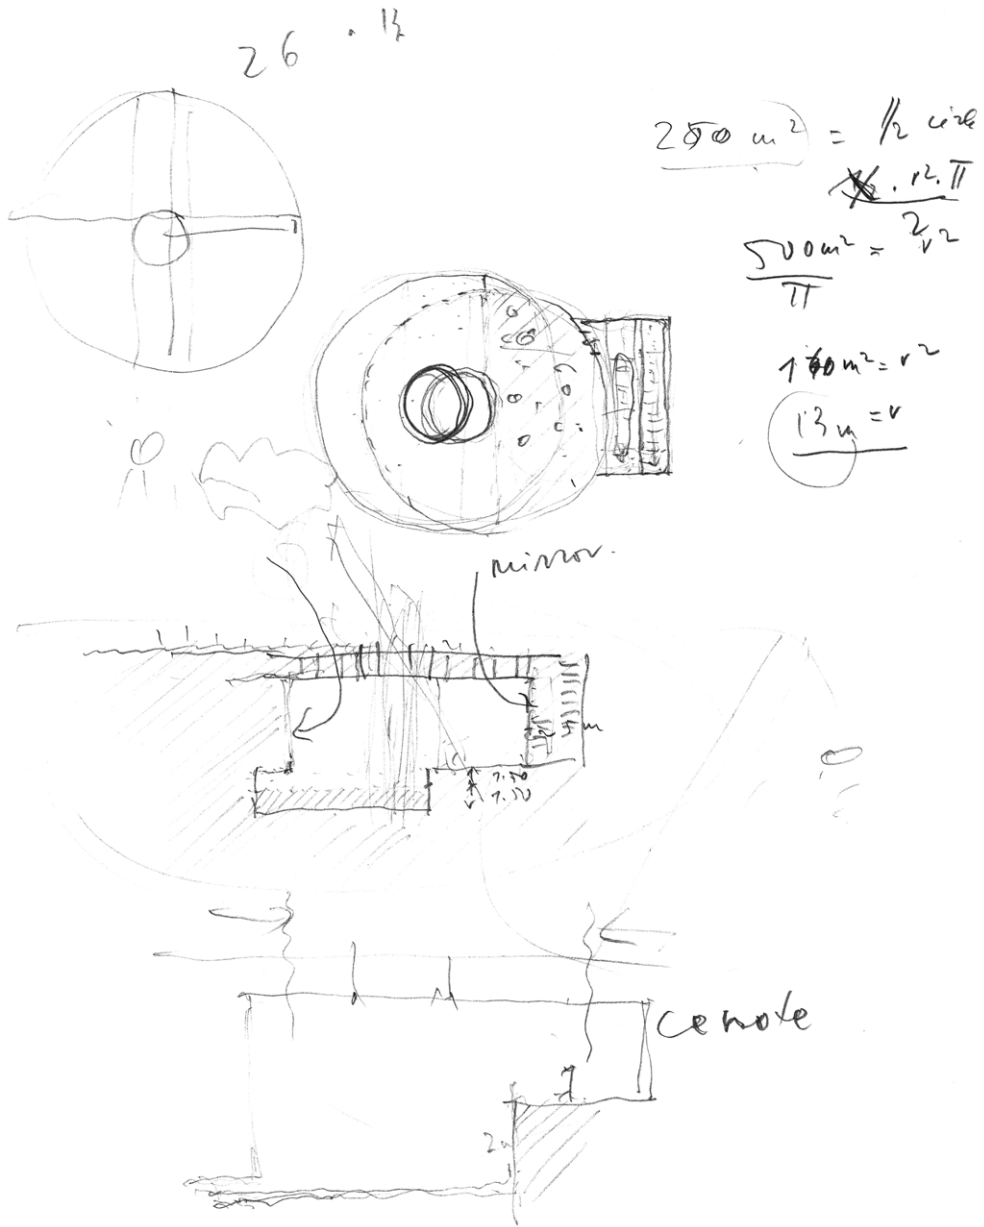 26 . 13
250 m² = 1/2 circle
r² . π
2
500 m² = r²
π
160 m² = r²
13 m = r
mirror.
m
1.50
1.50
cenote
2m